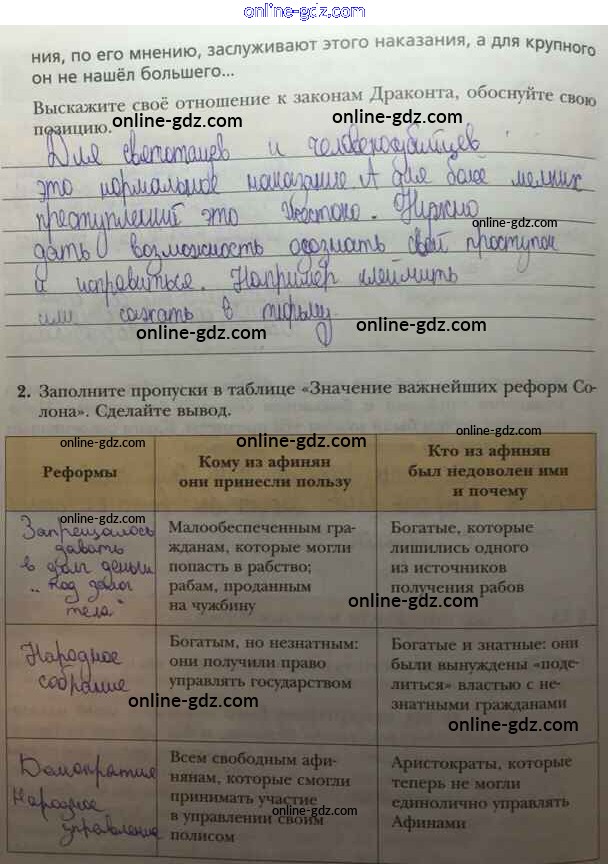 online-gdz.com
ния, по его мнению, заслуживают этого наказания, а для крупного
он не нашёл большего...
Выскажите своё отношение к законам Драконта, обоснуйте свою
online-gdz.com online-gdz.com
позицию.
Для святотатцев и человекоубийцев
это нормальное наказание. А для более мелких
преступлений это жестоко. Нужно
online-gdz.com
дать возможность осознать свой проступок
и исправиться. Например клеймить
или сажать в тюрьму.
online-gdz.com online-gdz.com
2. Заполните пропуски в таблице «Значение важнейших реформ Со-
лона». Сделайте вывод.
online-gdz.com online-gdz.com online-gdz.com
Реформы
Кому из афинян
они принесли пользу
Кто из афинян
был недоволен ими
и почему
online-gdz.com
Запрещалось
давать
в долг деньги
"под залог
тела"
Малообеспеченным гра-
жданам, которые могли
попасть в рабство;
рабам, проданным
на чужбину
Богатые, которые
лишились одного
из источников
получения рабов
online-gdz.com
Народное
собрание
Богатым, но незнатным:
они получили право
управлять государством
Богатые и знатные: они
были вынуждены «поде-
литься» властью с не-
знатными гражданами
online-gdz.com
online-gdz.com
Демократия
Народное
управление
Всем свободным афи-
нянам, которые смогли
принимать участие
в управлении своим
полисом
Аристократы, которые
теперь не могли
единолично управлять
Афинами